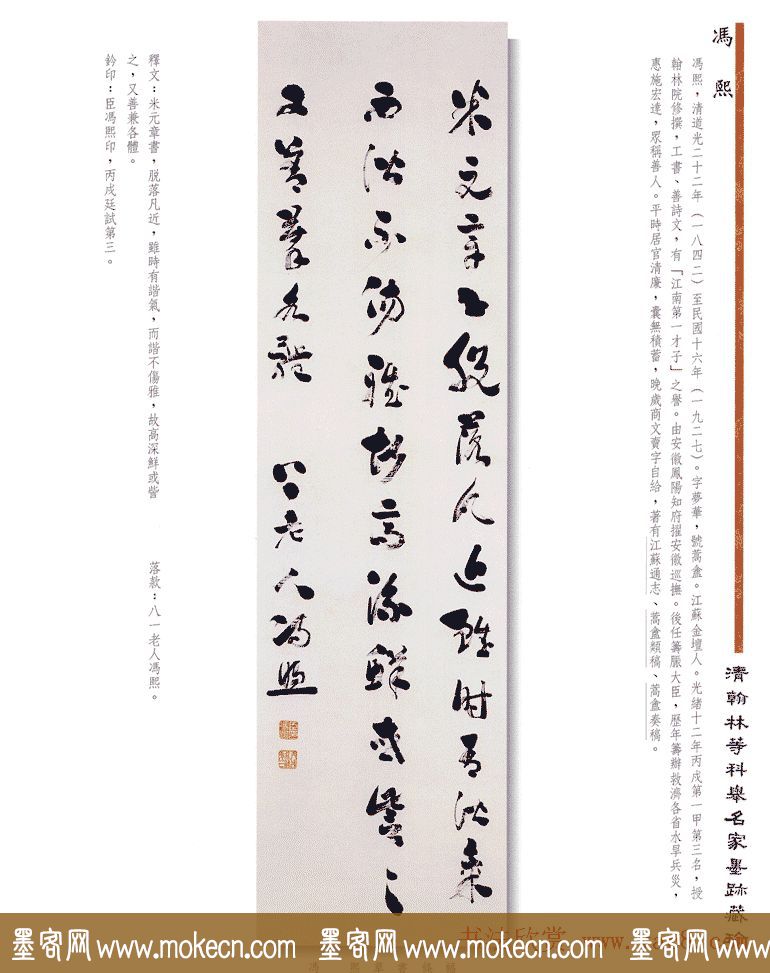 馮熙
清翰林等科舉名家墨跡藏
馮熙，清道光二十二年（一八四二）至民國十六年（一九二七）。字夢華，號蒿盦。江蘇金壇人。光緒十二年丙戌第一甲第三名，授
翰林院修撰，工書、善詩文，有「江南第一才子」之譽。由安徽鳳陽知府擢安徽巡撫。後任籌賑大臣，歷年籌辦救濟各省水旱兵災，
惠施宏達，眾稱善人。平時居官清廉，囊無積蓄，晚歲商文賣字自給，著有江蘇通志、蒿盦類稿、蒿盦奏稿。
米元章書脫落凡近雖時有諧氣
而諧不傷雅故高深鮮或訾之
又善兼各體 八一老人馮煦
釋文：米元章書，脫落凡近，雖時有諧氣，而諧不傷雅，故高深鮮或訾 落款：八一老人馮熙。
之，又善兼各體。
鈐印：臣馮熙印，丙戌廷試第三。
书法欣赏
墨客网 www.mokecn.com 墨客网 www.mokecn.com 墨客网 www.mokecn.com